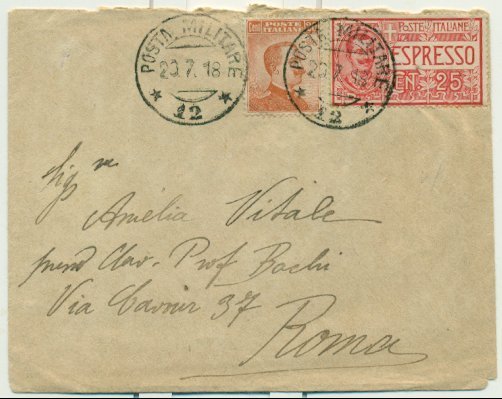 POSTA MILITARE
20.7.18
12
POSTE ITALIANE
POSTA MILITARE
20.7.18
12
POSTE ITALIANE
ESPRESSO
CENT. 25
Sig.ra
Amelia Vitale
Prof. Bachi
Via Cavour 37
Roma